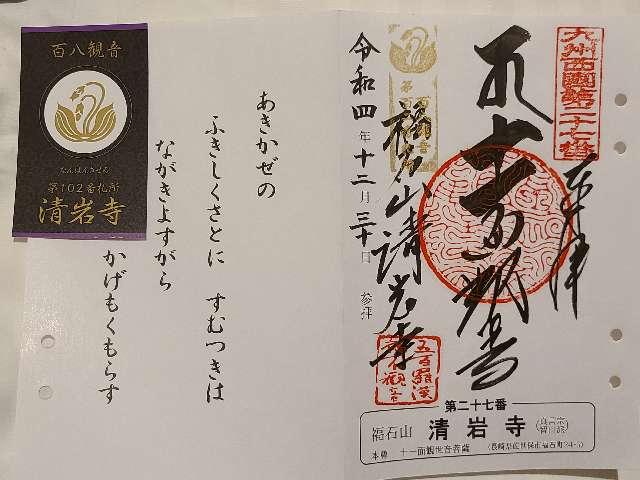 九州西国第二十七番
奉拝
十一面観音
福石山清岩寺
令和四年十二月三十日 参拝
五百羅漢
第二十七番
福石山 清岩寺
本尊 十一面観世音菩薩
あきかぜの
ふきしくさとに すむつきは
ながきよすがら
かげもくもらす
百八観音
第102番札所
清岩寺